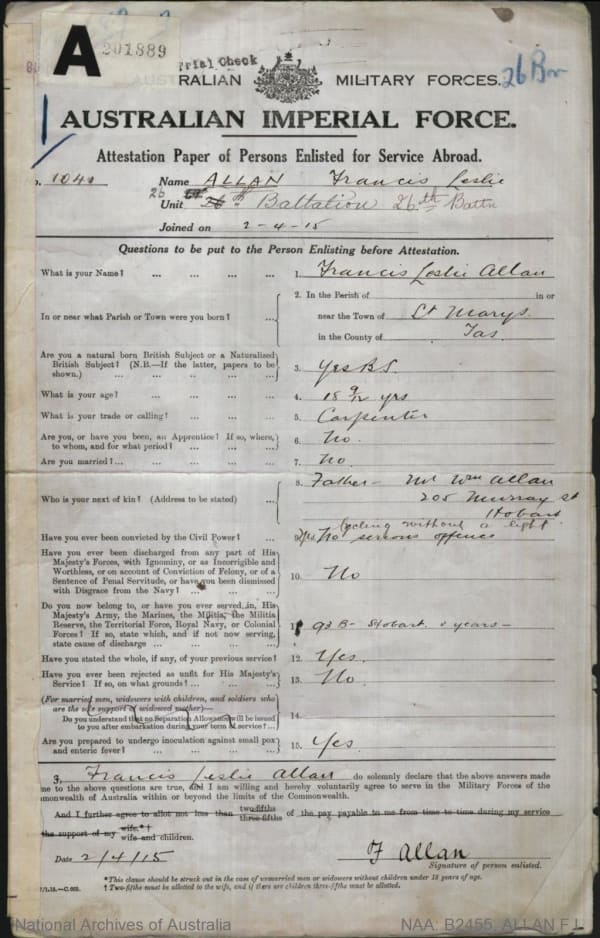 A 201889
Trial Check
AUSTRALIAN MILITARY FORCES.
26 Bn
AUSTRALIAN IMPERIAL FORCE.
Attestation Paper of Persons Enlisted for Service Abroad.
Name ALLAN Francis Leslie
Unit 26 Battalion 26th Battn
Joined on 2-4-15
Questions to be put to the Person Enlisting before Attestation.
What is your Name? ... ... ... 1. Francis Leslie Allan
In or near what Parish or Town were you born? ... 2. In the Parish of in or
near the Town of St Marys
in the County of Tas.
Are you a natural born British Subject or a Naturalized
British Subject? (N.B.—If the latter, papers to be
shown.) ... ... ... ... 3. Yes B.S.
What is your age? ... ... ... 4. 18 9/12 yrs
What is your trade or calling? ... ... 5. Carpenter
Are you, or have you been, an Apprentice? If so, where,
to whom, and for what period? ... ... 6. No.
Are you married?... ... ... ... 7. No.
Who is your next of kin? (Address to be stated) ... 8. Father - Mr Wm Allan
205 Murray St
Hobart
Cycling without a light
Have you ever been convicted by the Civil Power? ... 9. No serious offence
Have you ever been discharged from any part of His
Majesty's Forces, with Ignominy, or as Incorrigible and
Worthless, or on account of Conviction of Felony, or of a
Sentence of Penal Servitude, or have you been dismissed
with Disgrace from the Navy? ... ... 10. No
Do you now belong to, or have you ever served in, His
Majesty's Army, the Marines, the Militia, the Militia
Reserve, the Territorial Force, Royal Navy, or Colonial
Forces? If so, state which, and if not now serving,
state cause of discharge ... ... ... 11. 93 B- Hobart. years—
Have you stated the whole, if any, of your previous service? 12. Yes.
Have you ever been rejected as unfit for His Majesty's
Service? If so, on what grounds? ... ... 13. No
(For married men, widowers with children, and soldiers who
are the sole support of widowed mother)—
Do you understand that no Separation Allowance will be issued
to you after embarkation during your term of service?... 14.
Are you prepared to undergo inoculation against small pox
and enteric fever? ... ... ... 15. Yes.
I, Francis Leslie Allan do solemnly declare that the above answers made
me to the above questions are true, and I am willing and hereby voluntarily agree to serve in the Military Forces of the
mmonwealth of Australia within or beyond the limits of the Commonwealth.
And I further agree to allot not less than two-fifths three-fifths of the pay payable to me from time to time during my service
the support of my wife.*† wife and children.
Date 2/4/15 F Allan
Signature of person enlisted.
*This clause should be struck out in the case of unmarried men or widowers without children under 18 years of age.
† Two-fifths must be allotted to the wife, and if there are children three-fifths must be allotted.
National Archives of Australia NAA: B2455, ALLAN F L